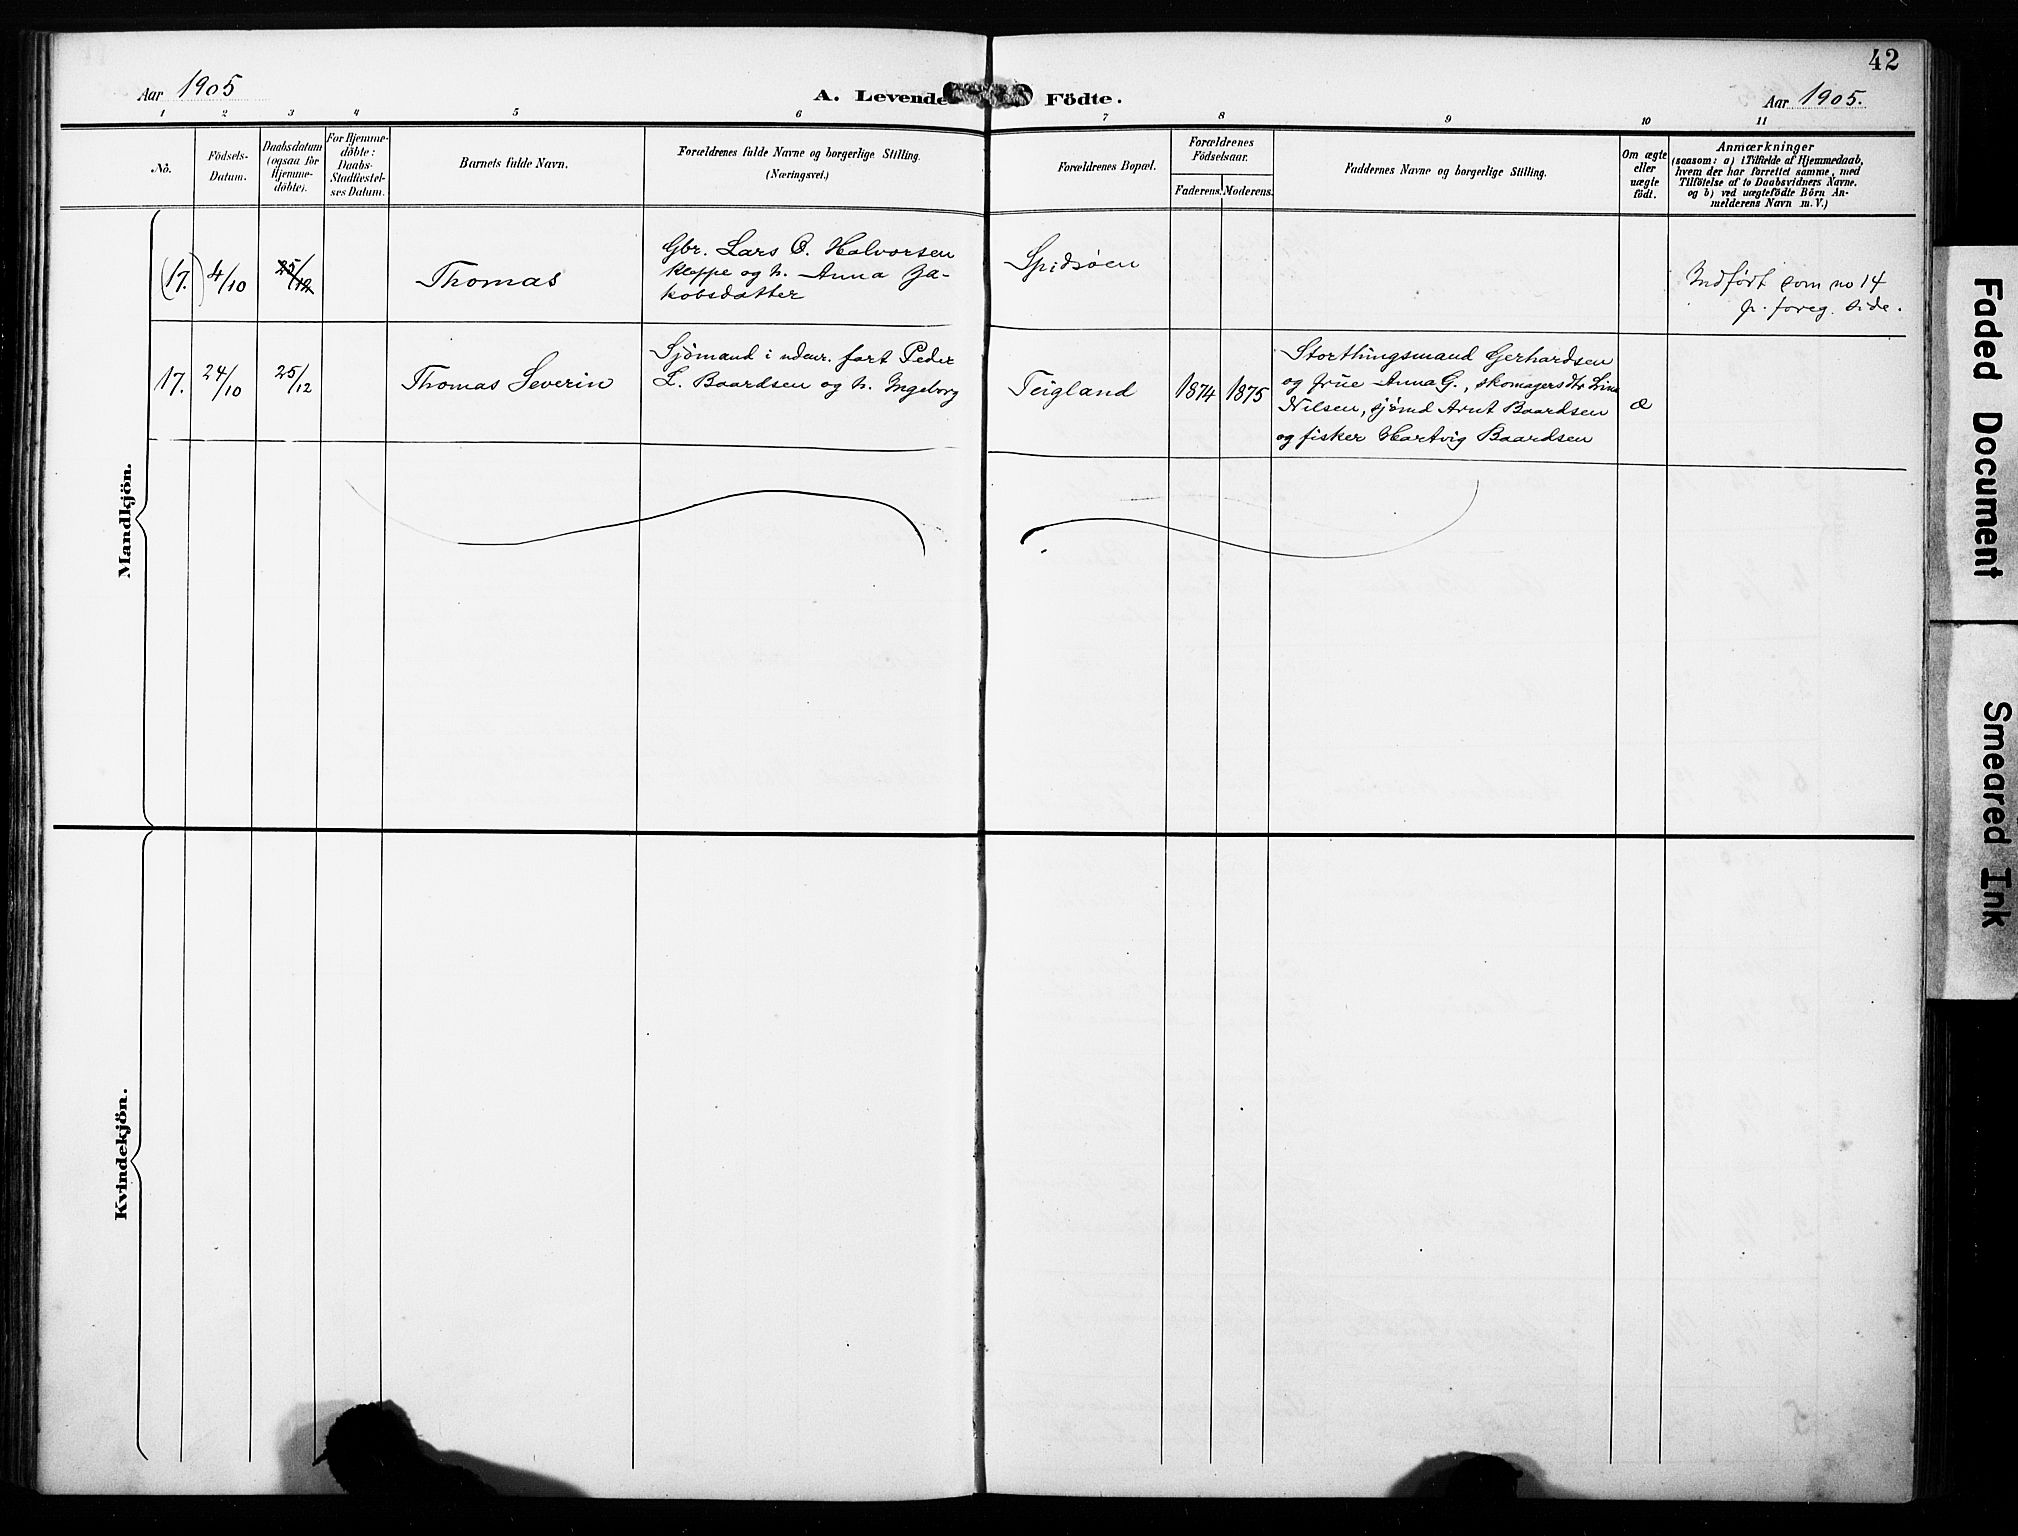 42
Aar 1905
A. Levende Födte.
Aar 1905.
1 2 3 4 5 6 7 8 9 10 11
No.
Födsels-
Datum.
Daabsdatum
(ogsaa for
Hjemme-
døbte).
For Hjemme-
døbte:
Daabs-
Stadfæstel-
ses Datum.
Barnets fulde Navn.
Forældrenes fulde Navne og borgerlige Stilling.
(Næringsvei.)
Forældrenes Bopæl.
Forældrenes
Födselsaar.
Faderens. Moderens.
Faddernes Navne og borgerlige Stilling.
Om ægte
eller
uægte
født.
Anmærkninger
(saasom: a) i Tilfælde af Hjemmedaab,
hvem der har forrettet samme, med
Tilföielse af to Daabsvidners Navne.
og b) ved uægtefödte Börn An-
melderens Navn m. V.)
Mandkjön.
(17.) 4/10 25/12
Thomas
Gbr. Lars O. Halvorsen
Kloppe og h. Anna Ja-
kobsdatter
Spidsöen
Indført som no 14
p. foreg. side.
17. 24/10 25/12
Thomas Severin
Sjömand i udenr. fart Peder
L. Baardsen og h. Ingeborg
Teigland
1874 1875
Storthingsmand Gerhardsen
og frue Anna G., skomagersdtr
Nilsen, sjömd Arnt Baardsen
og fisker Hartvig Baardsen
æ
Kvindekjön.
Faded Document
Smeared Ink